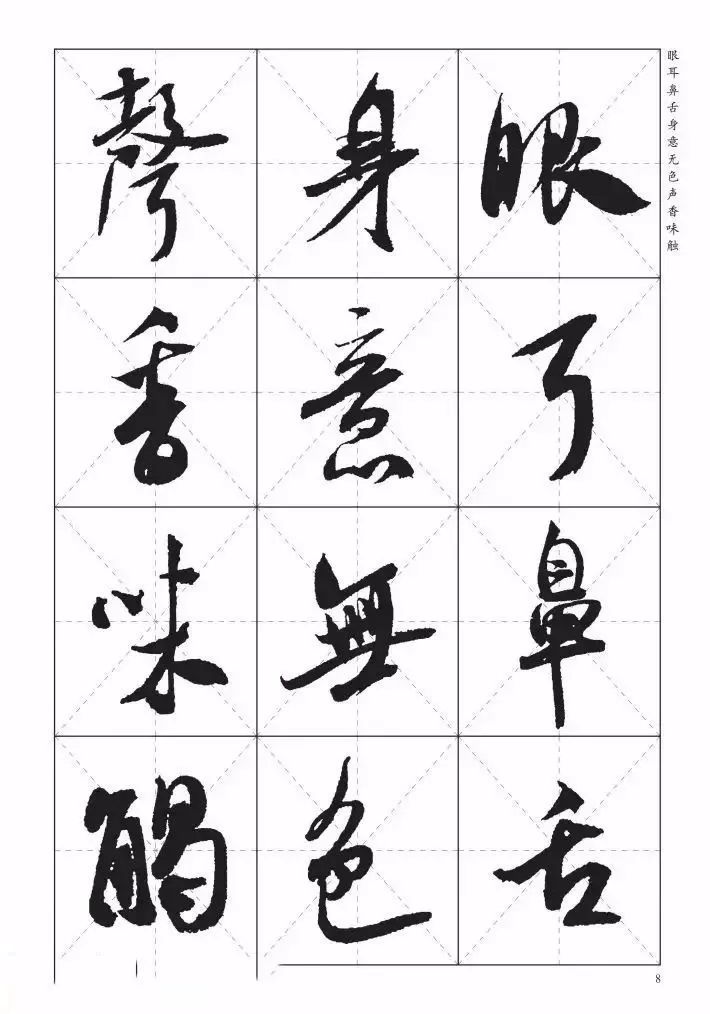 眼耳鼻舌身意无色声香味触
眼耳鼻舌
身意無色
聲香味觸
8